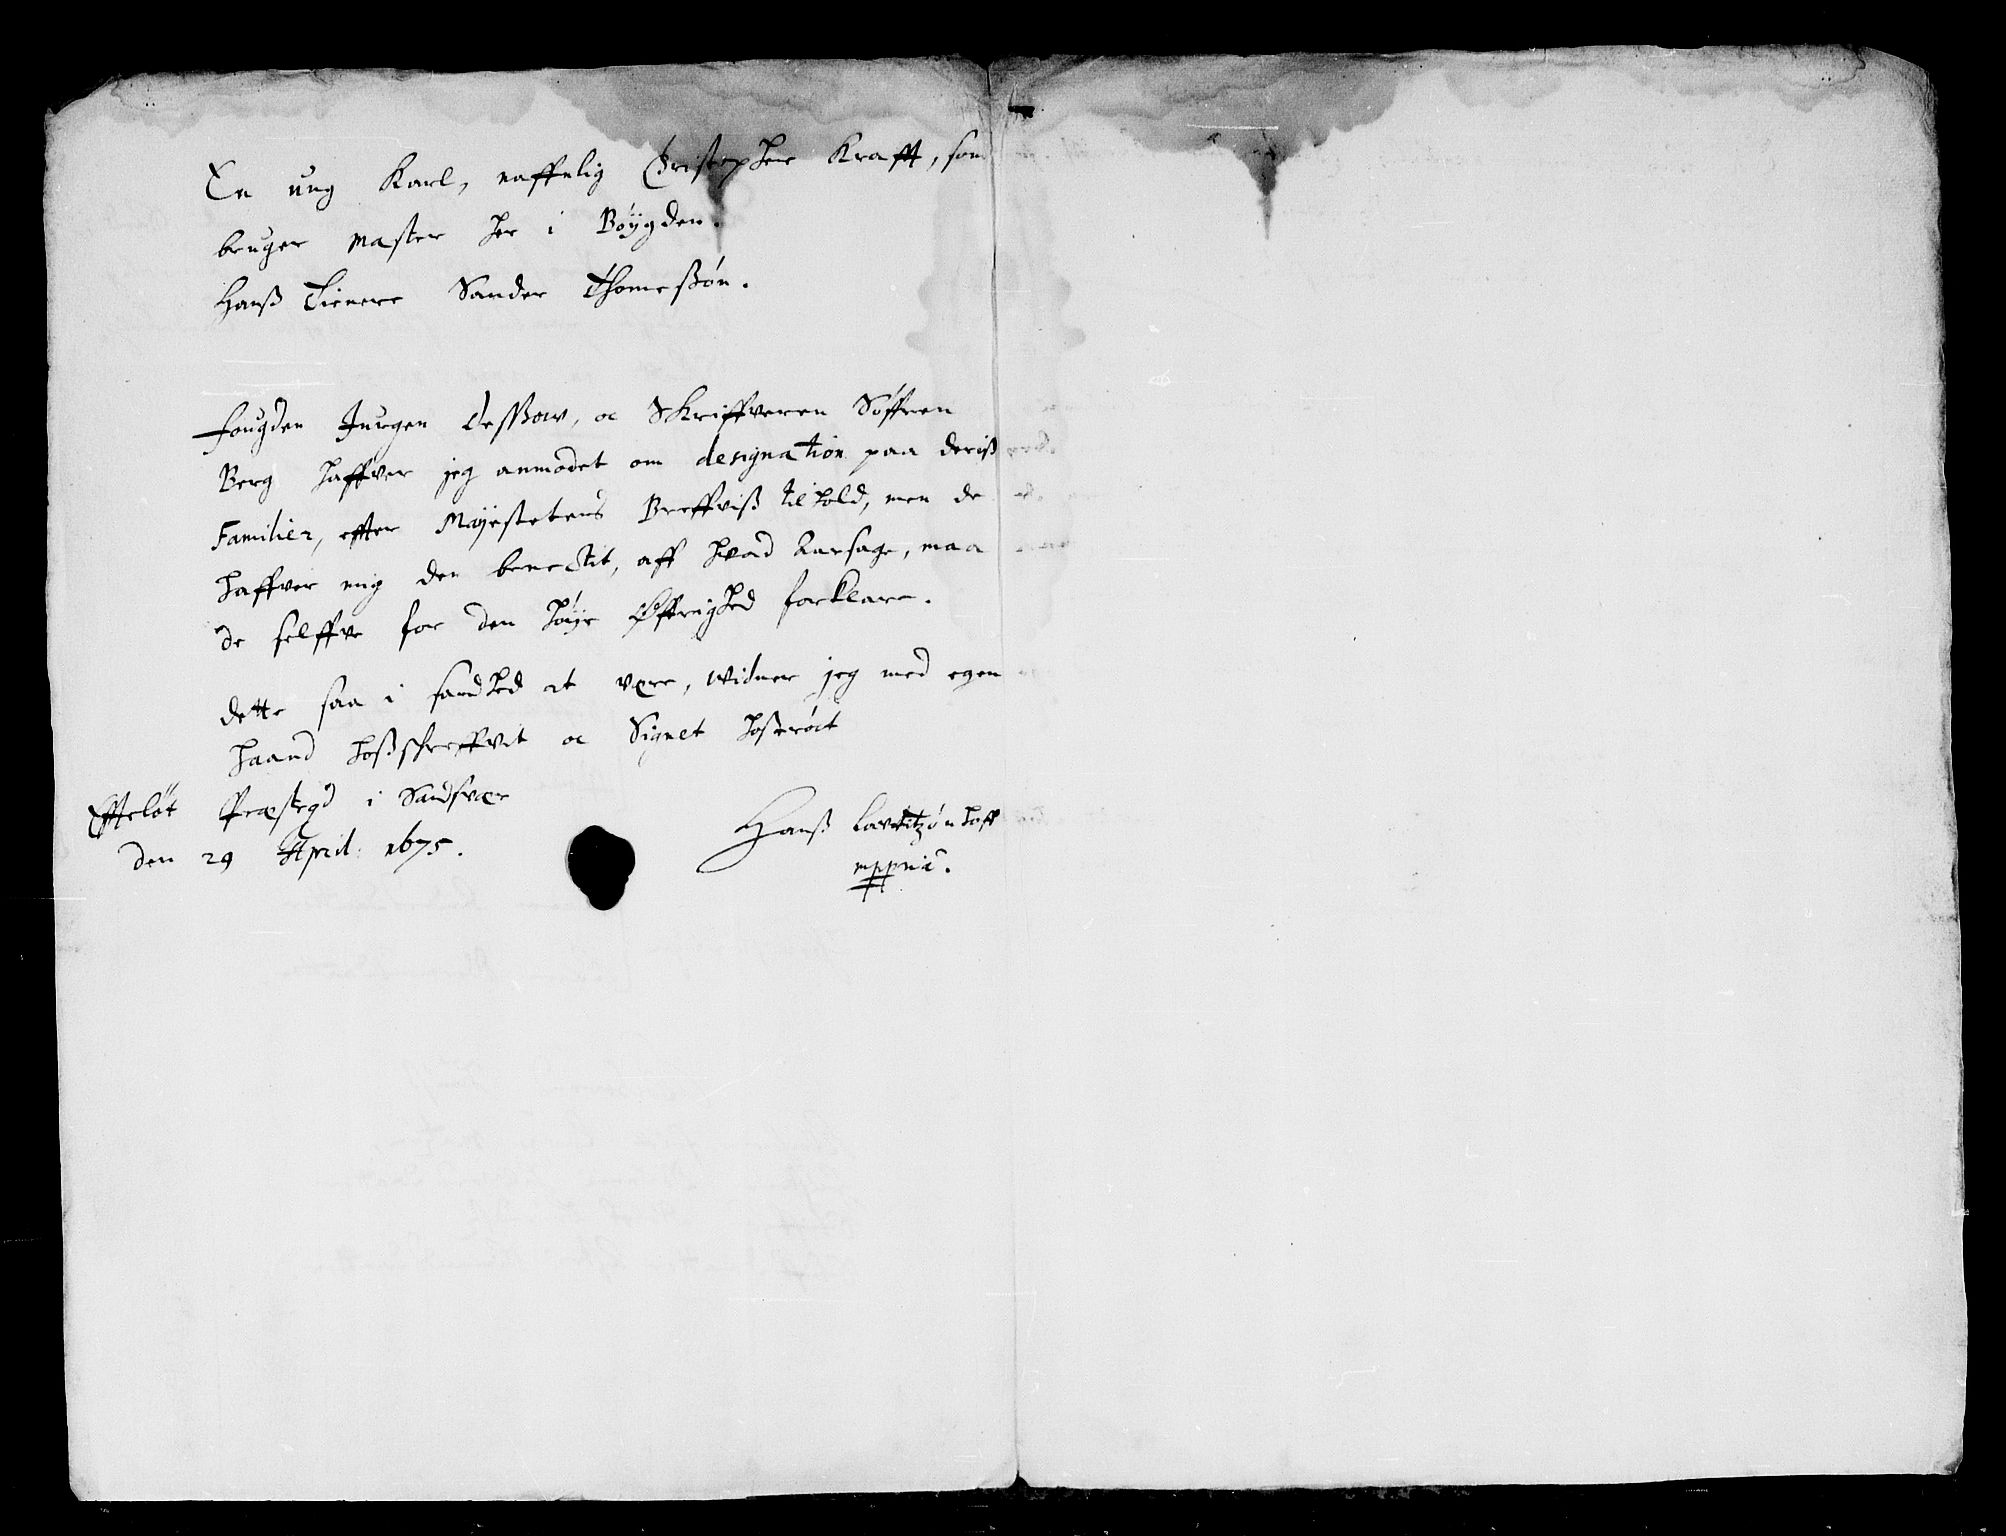 En ung Karl, naffnlig Christopher Krafft, som
bruger Master her i Bøygden.
Hanß Tienere Sander Thomeßøn.
Fougden Jurgen Deßow, oc Skriffveren Søffren
Berg haffver jeg anmodet om designation paa deriß
Familier, effter Mayestetens Breffviß tilhold, men de
haffver mig den benectit, aff hvad Aarsage, maa
de selffve for den høye Øffrighed forklare.
dette saa i sandhed at være, widner jeg med egen
haand hoßskreffvet oc Signet hostrøct
Effteløt Præstegd i Sandsvær
den 29 April: 1675.
Hanß Lavritzøn Hoff
mppria.